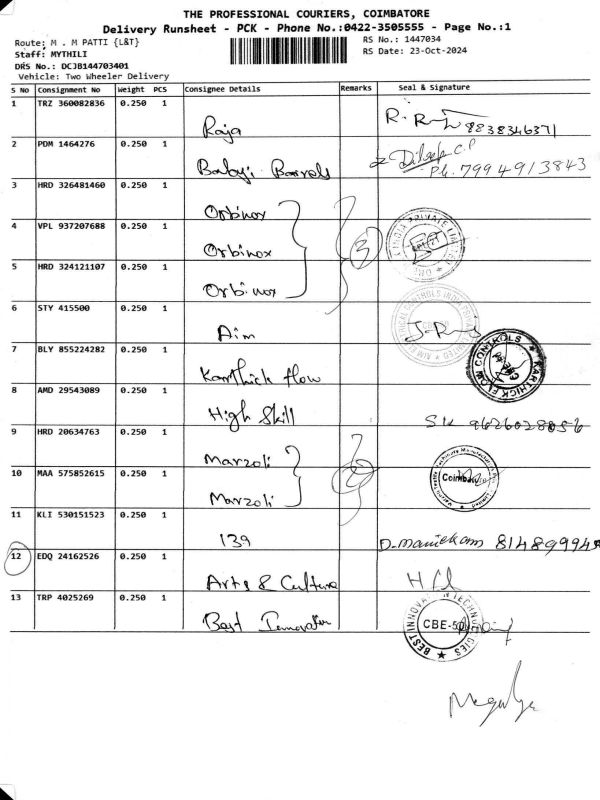 THE PROFESSIONAL COURIERS, COIMBATORE
Delivery Runsheet - PCK - Phone No.:0422-3505555 - Page No.:1
Route: M . M PATTI {L&T}
RS No.: 1447034
Staff: MYTHILI
RS Date: 23-Oct-2024
DRS No.: DCJB144703401
Vehicle: Two Wheeler Delivery
S No Consignment No Weight PCS Consignee Details Remarks Seal & Signature
1 TRZ 360082836 0.250 1
Raja R. 8838346371
2 PDM 1464276 0.250 1
Balaji Barrels Dileep C.P
Ph. 7994913843
3 HRD 326481460 0.250 1
Orbinox
4 VPL 937207688 0.250 1
Orbinox 3
5 HRD 324121107 0.250 1
Orbinox
6 STY 415500 0.250 1
Aim
7 BLY 855224282 0.250 1
Karthick flow KARTHICK FLOW CONTROLS
8 AMD 29543089 0.250 1
High Skill SK 9626028056
9 HRD 20634763 0.250 1
Marzoli
10 MAA 575852615 0.250 1
Marzoli 2 Coimbatore
11 KLI 530151523 0.250 1
139 D. Manickam 814899945
12 EDQ 24162526 0.250 1
Arts & Culture
13 TRP 4025269 0.250 1
Best Innovation BEST INNOVATION TECHNOLOGIES
CBE-50